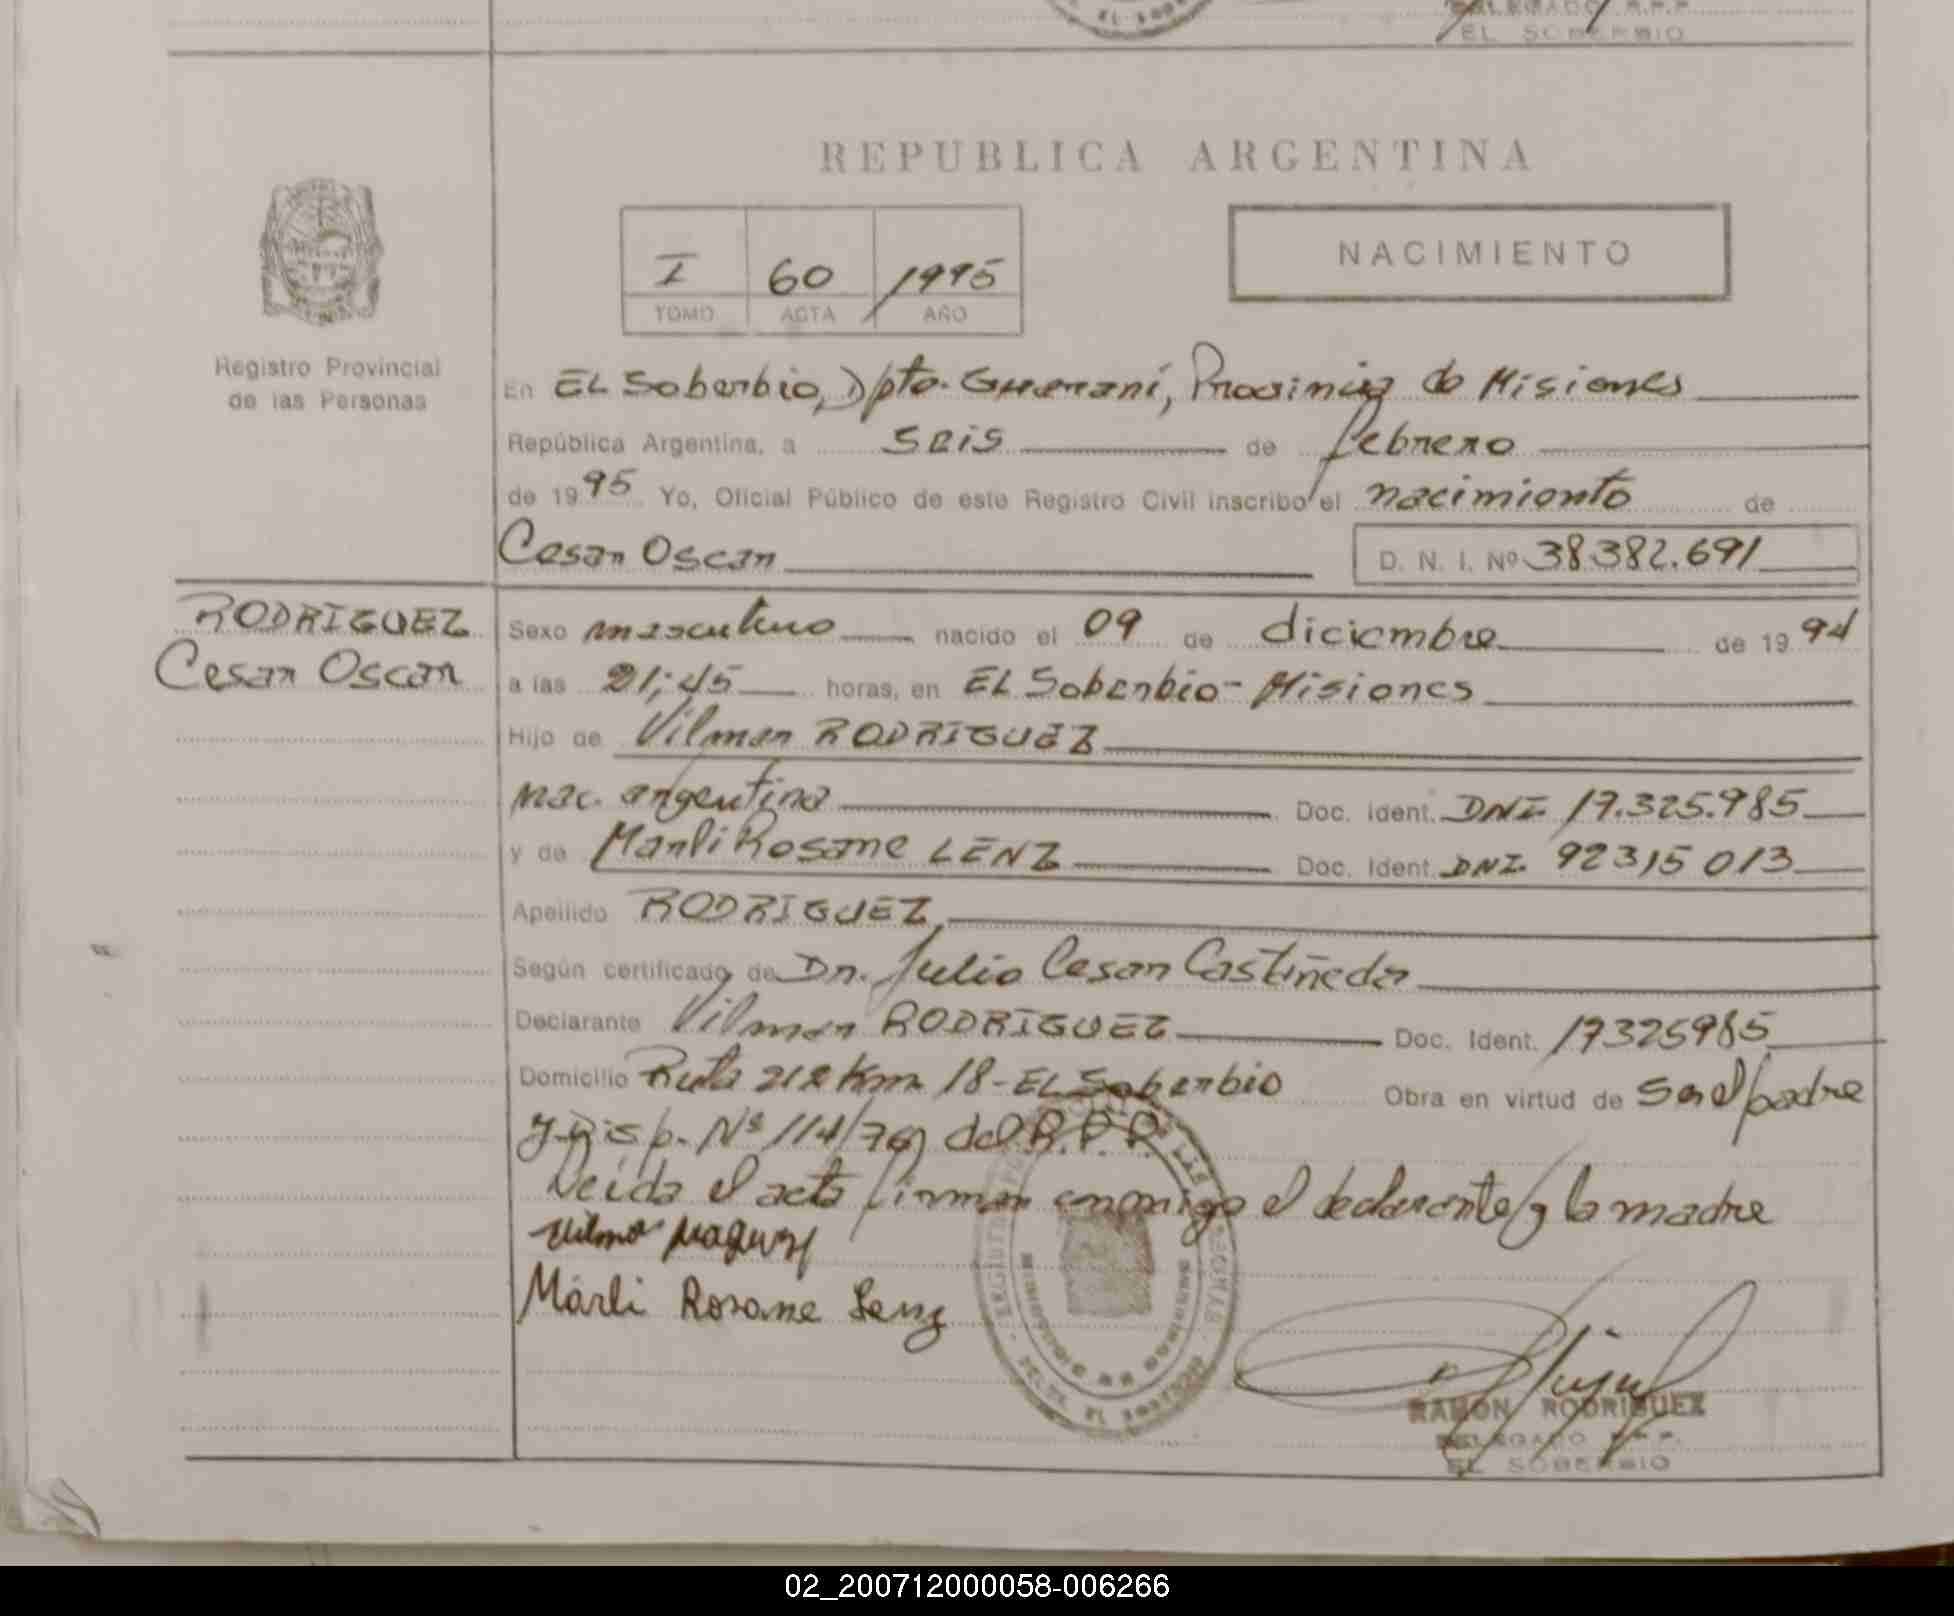 EL SOBERBIO
REPUBLICA ARGENTINA
NACIMIENTO
I 60 1995
TOMO ACTA AÑO
Registro Provincial
de las Personas
En EL Soberbio, Dpto. Guaraní, Provincia de Misiones
República Argentina, a seis de febrero
de 1995 Yo, Oficial Público de este Registro Civil inscribo el nacimiento de
Cesar Oscar D. N. I. Nº 38.382.691
RODRIGUEZ
Cesar Oscar
Sexo masculino nacido el 09 de diciembre de 1994
a las 21;45 horas, en EL Soberbio - Misiones
Hijo de Vilmar RODRIGUEZ
nac. argentina Doc. Ident. DNI. 17.325.985
y de Marli Rosane LENZ Doc. Ident. DNI. 92315013
Apellido RODRIGUEZ
Según certificado de Dr. Julio Cesar Castiñeda
Declarante Vilmar RODRIGUEZ Doc. Ident. 17325985
Domicilio Ruta 212 Km 18 - EL Soberbio Obra en virtud de ser el padre
y Disp. Nº 114/76) del R.P.P.
Leida el acta firman conmigo el declarante y la madre
Marli Rosane Lenz
RAMON RODRIGUEZ
DELEGADO R.P.P.
EL SOBERBIO
02_200712000058-006266